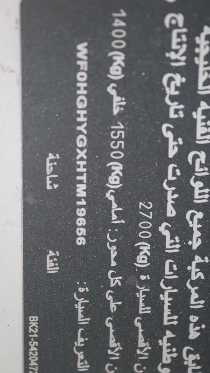 ابق هذه المركبة جميع اللوائح الفنية الخليجية
وطنية للسيارات التي صدرت حتى تاريخ الإنتاج
ن الاقصى للسيارة : 2700 (Kg)
ن الاقصى على كل محور: أمامي (Kg) 1550 خلفي (Kg) 1400
التعريف السيارة : WF0HGHYGXHTM19656
الفئة شاحنة
BK21-542047